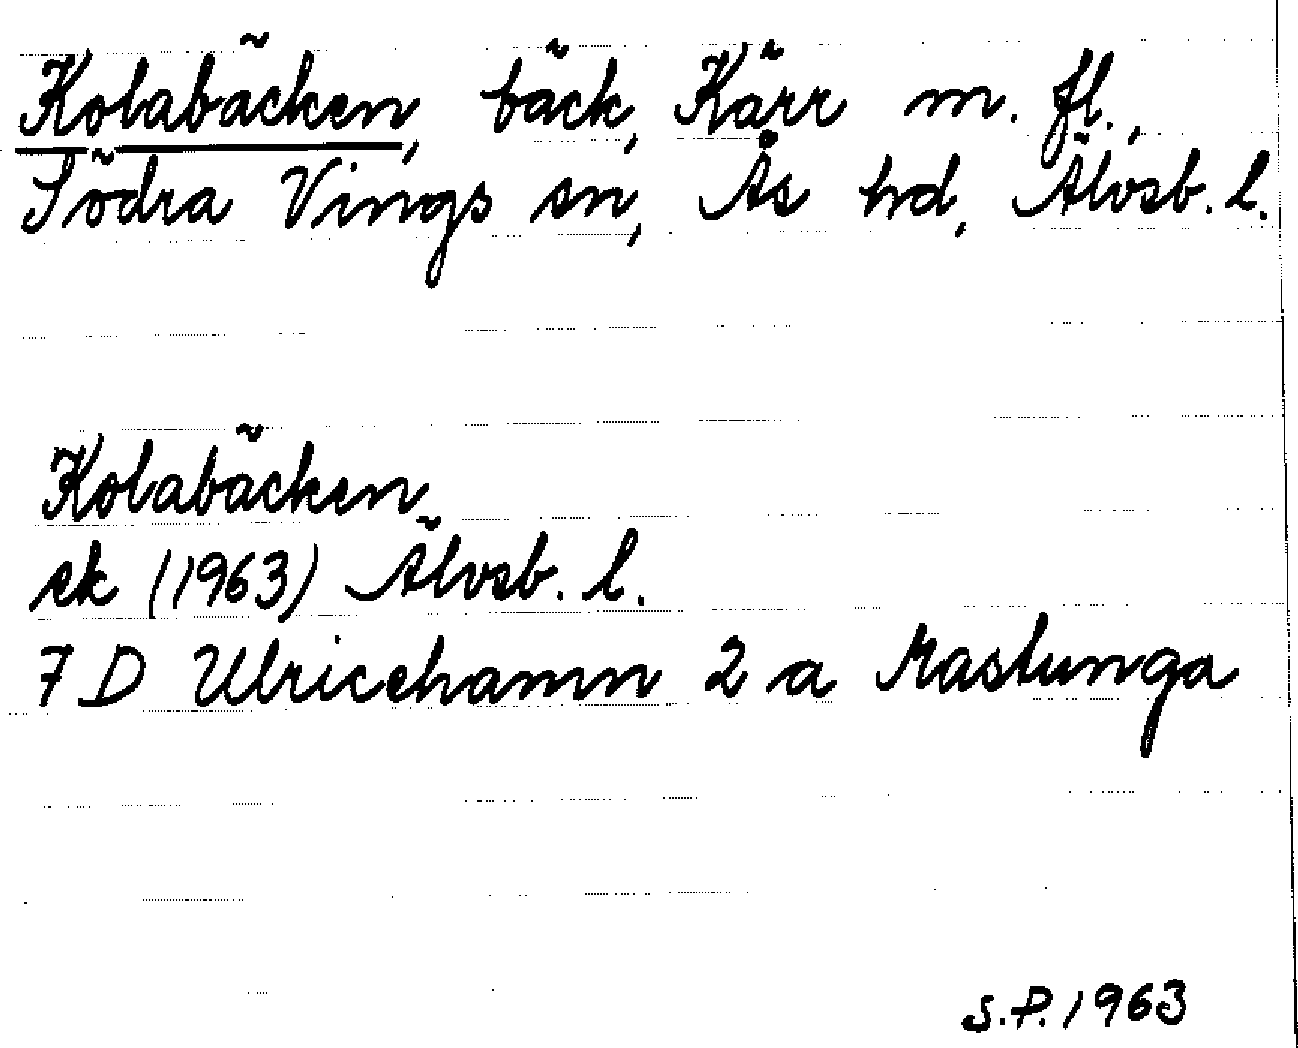 Kolabäcken, bäck, Kärr m. fl.,
Södra Vings sn, Ås hd, Älvsb. l.
Kolabäcken
ek (1963) Älvsb. l.
7 D Ulricehamn 2 a Rastunga
S.P. 1963